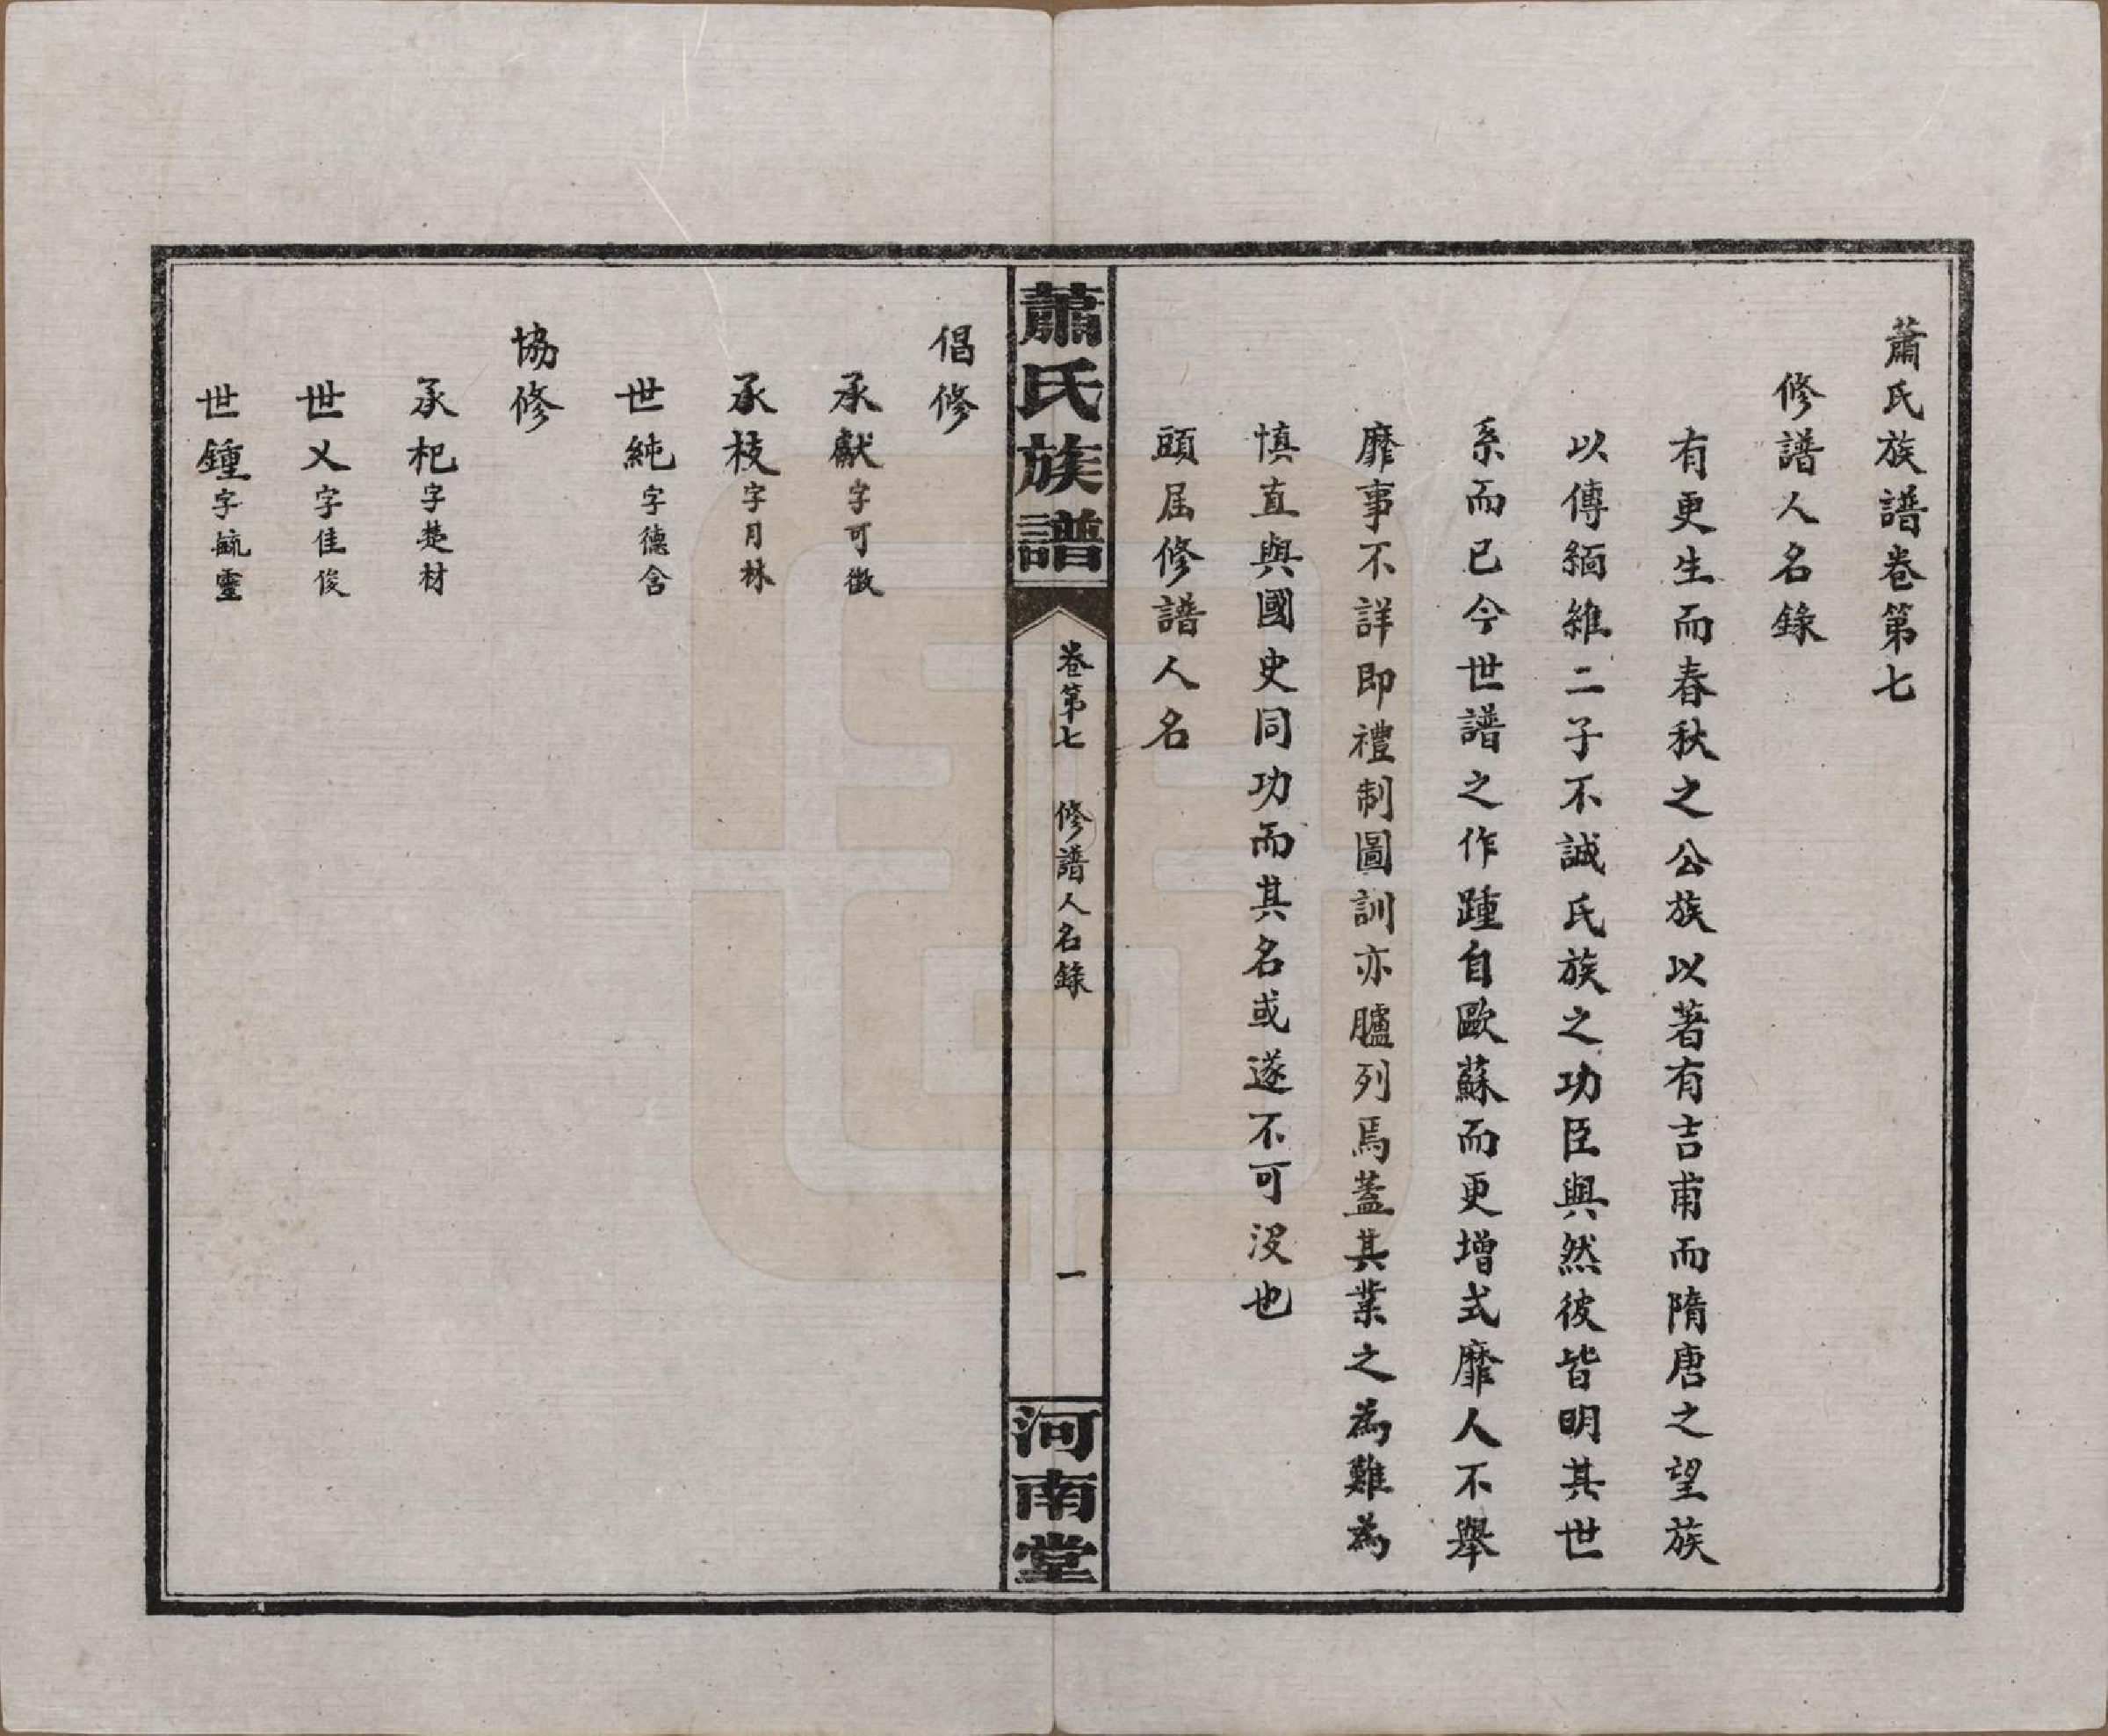 蕭氏族譜卷第七
修譜人名錄
有更生而春秋之公族以著有吉甫而隋唐之望族
以傳緬維二子不誠氏族之功臣與然彼皆明其世
系而已今世譜之作踵自歐蘇而更增式靡人不舉
靡事不詳即禮制圖訓亦臚列焉蓋其業之為難為
慎直與國史同功而其名或遂不可沒也
頭屆修譜人名
蕭氏族譜
卷第七 修譜人名錄
一
河南堂
倡修
承獻字可徵
承枝字月林
世純字德含
協修
承杞字楚材
世义字佳俊
世鍾字毓靈